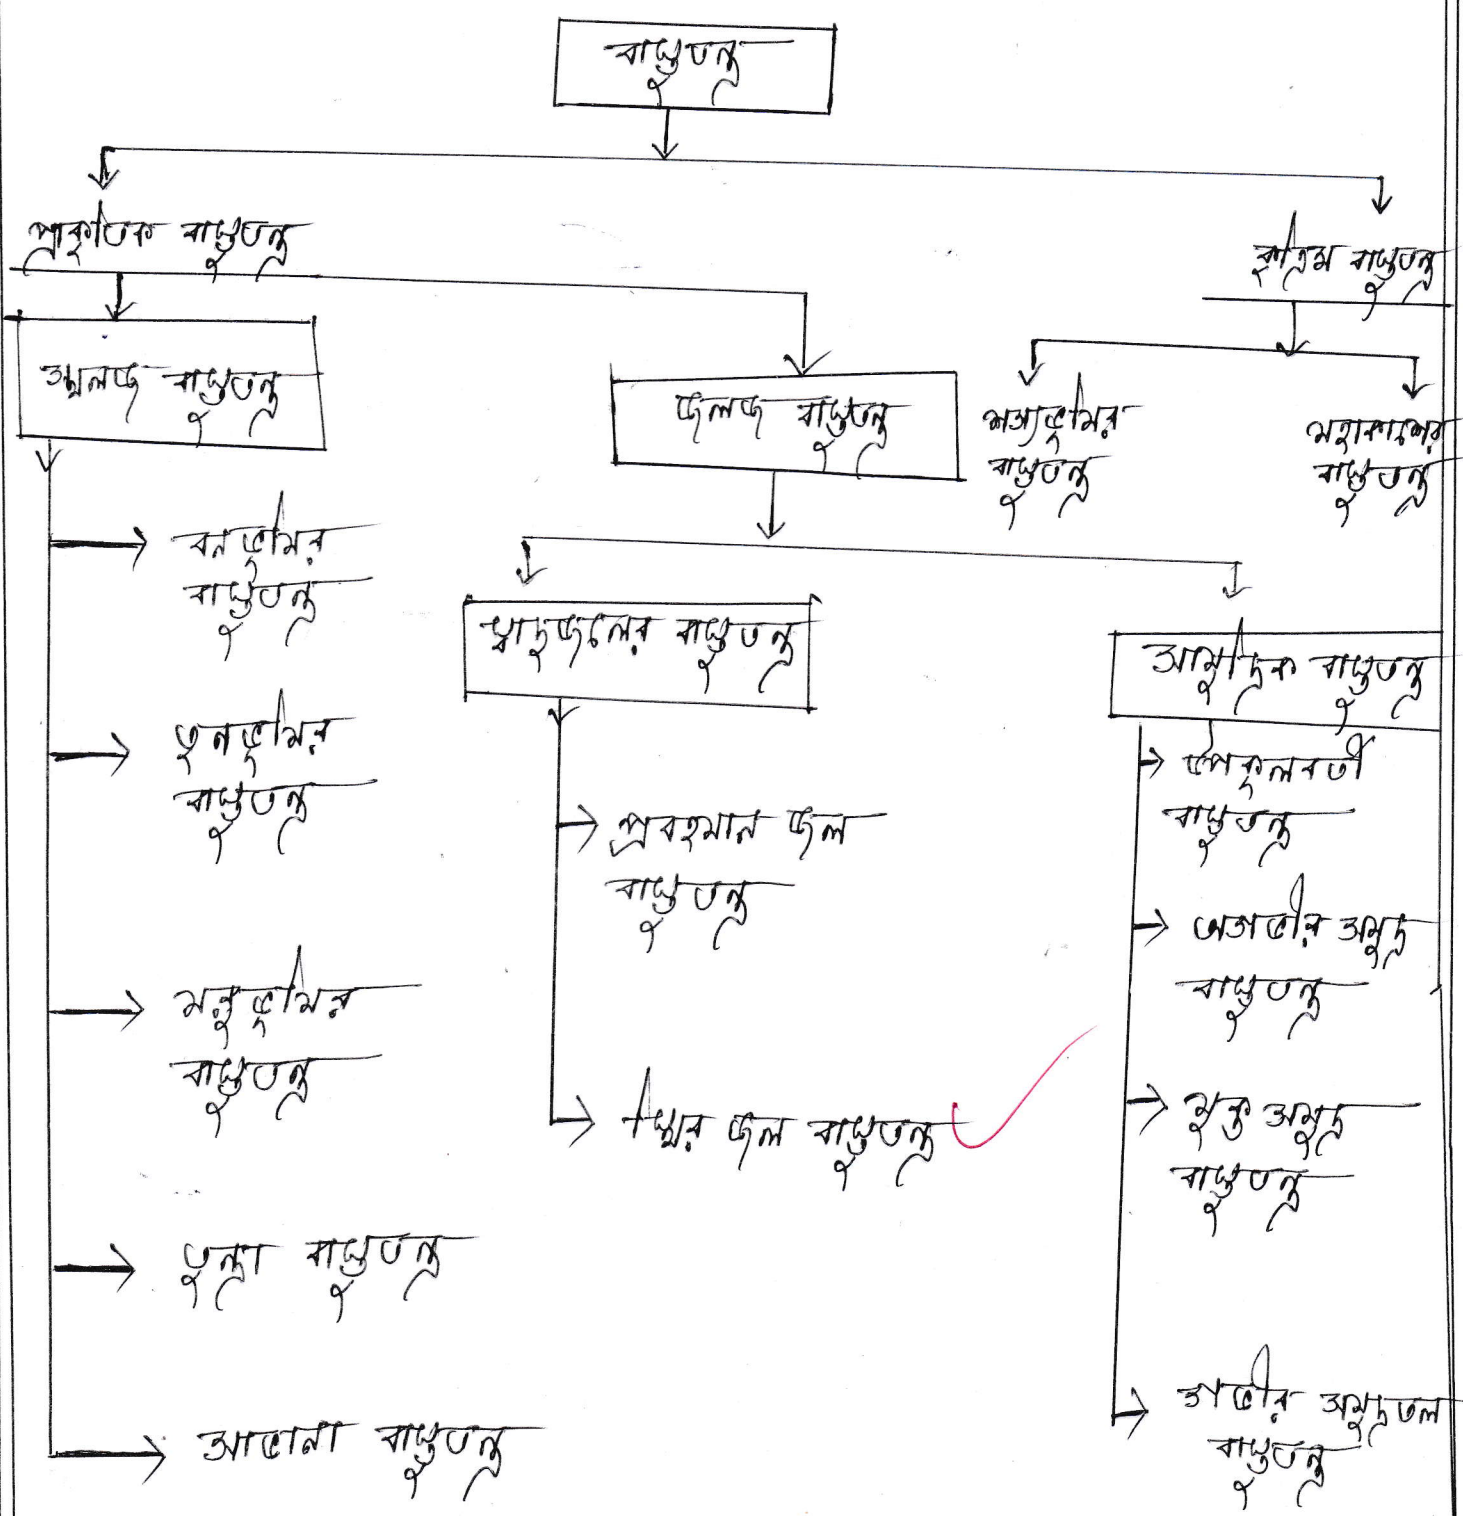 বাস্তুতন্ত্র
প্রাকৃতিক বাস্তুতন্ত্র
কৃত্রিম বাস্তুতন্ত্র
স্থলজ বাস্তুতন্ত্র
জলজ বাস্তুতন্ত্র
শস্যভূমির
বাস্তুতন্ত্র
মহাকাশের
বাস্তুতন্ত্র
বনভূমির
বাস্তুতন্ত্র
তৃনভূমির
বাস্তুতন্ত্র
মরুভূমির
বাস্তুতন্ত্র
তুন্দ্রা বাস্তুতন্ত্র
সাভানা বাস্তুতন্ত্র
স্বাদুজলের বাস্তুতন্ত্র
প্রবহমান জল
বাস্তুতন্ত্র
স্থির জল বাস্তুতন্ত্র
সামুদ্রিক বাস্তুতন্ত্র
উপকূলবর্তী
বাস্তুতন্ত্র
অগভীর সমুদ্র
বাস্তুতন্ত্র
মুক্ত সমুদ্র
বাস্তুতন্ত্র
গভীর সমুদ্রতল
বাস্তুতন্ত্র